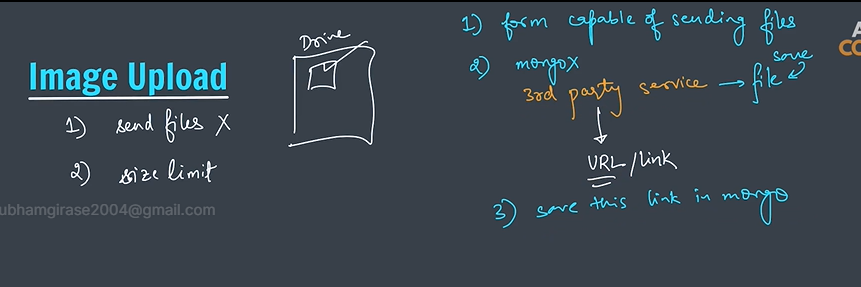 Image Upload
1) send files X
2) size limit
ubhamgirase2004@gmail.com
Drive
1) form capable of sending files
2) mongo X
3rd party service → file
save
URL/link
3) save this link in mongo
A
CO